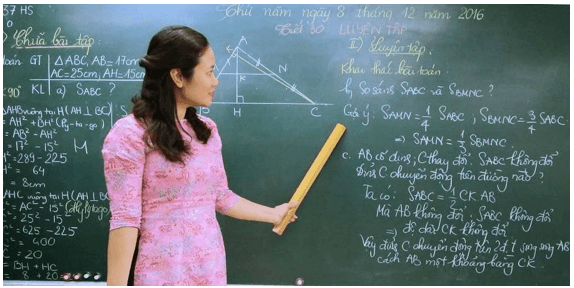 37 HS
Thứ năm ngày 8 tháng 12 năm 2016
Tiết 30 LUYỆN TẬP
Chữa bài tập
GT Δ ABC, AB = 17cm
AC = 25cm, AH = 15cm
KL a) SABC ?
A
E
N
K
H
C
M
AH² + BH² (Py-ta-go)
= AB² - AH²
= 17² - 15²
= 289 - 225
= 64
= 8cm
AHC vuông tại H (AH ⊥ BC)
= AC² - 15² (đlý Pytago)
= 25² - 15²
= 625 - 225
= 400
C = 20
= BH + HC
= 8 + 20
II) Luyện tập:
Khai thác bài toán:
b, So sánh SABC và SBMNC ?
Gợi ý: SAMN = 1/4 SABC ; SBMNC = 3/4 SABC
⇒ SAMN = 1/3 SBMNC.
c. AB cố định, C thay đổi: SABC không đổi
Đỉnh C chuyển động trên đường nào?
Ta có: SABC = 1/2 CK.AB
Mà AB không đổi, SABC không đổi
⇒ độ dài CK không đổi
Vậy đỉnh C chuyển động trên 2 đ.t song song AB
cách AB một khoảng bằng CK.